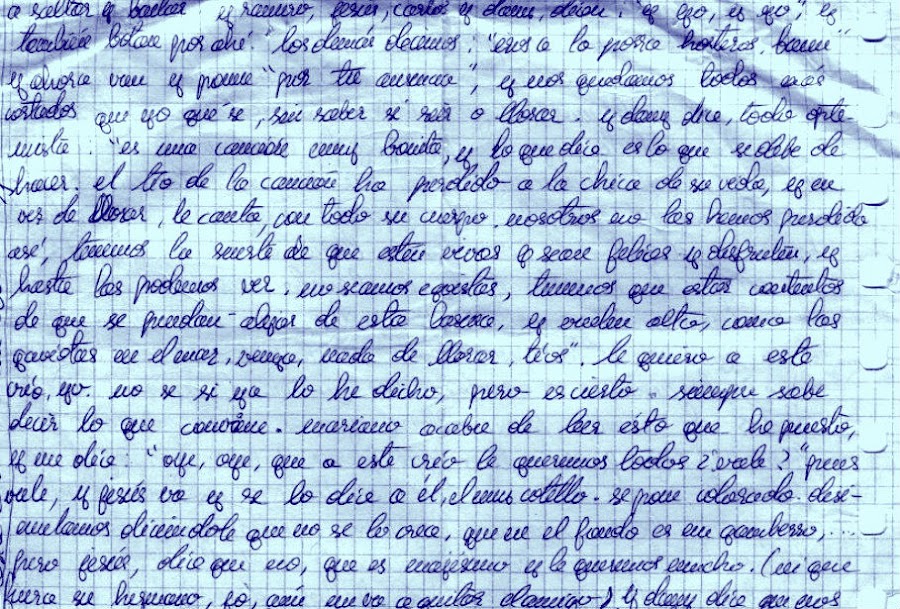 a saltar y bailar y ramiro, jesús, carlos y dany, dicen: "y yo, y yo", y
también botan por ahí. los demás decimos: "eros a la porra horteras. bueno"
y ahora van y ponen "por tu ausencia", y nos quedamos todos más
cortados que yo qué se, sin saber si reír o llorar. y dany dice, todo opti-
mista: "es una canción muy bonita, y lo que dice es lo que se debe de
hacer. el tío de la canción ha perdido a la chica de su vida, y en
vez de llorar, le canta, con todo su cuerpo. nosotros no las hemos perdido
así, tenemos la suerte de que estén vivas y sean felices y disfruten, y
hasta las podemos ver. no seamos egoístas, tenemos que estar contentos
de que se puedan alejar de esta basura, y vuelen alto, como las
gaviotas en el mar, venga, nada de llorar, tíos". le quiero a este
crío, yo. no se si ya lo he dicho, pero es cierto. siempre sabe
decir lo que conviene. mariano acaba de leer ésto que he puesto,
y me dice: "oye, oye, que a este crío le queremos todos ¿vale?" pues
vale, y jesús va y se lo dice a él, el muy cotilla. se pone colorado. disi-
mulamos diciéndole que no se lo crea, que en el fondo es un gamberro,...
pero jesús, dice que no, que es majísimo y le queremos mucho. (ni que
fuera su hermano, jo, aún me va a quitar el amigo) y dany dice que nos